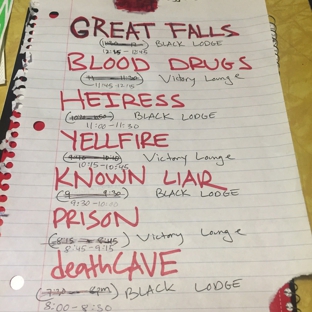 GREAT FALLS
BLACK LODGE
12:15 - 12:45
BLOOD DRUGS
Victory Lounge
11:45 - 12:15
HEIRESS
BLACK LODGE
11:00 - 11:30
YELLFIRE
Victory Lounge
10:15 - 10:45
KNOWN LIAR
(9 - 9:30) BLACK LODGE
9:30 - 10:00
PRISON
(8:15 - 8:45) Victory Lounge
8:45 - 9:15
deathCAVE
(7:30 - 8pm) BLACK LODGE
8:00 - 8:30